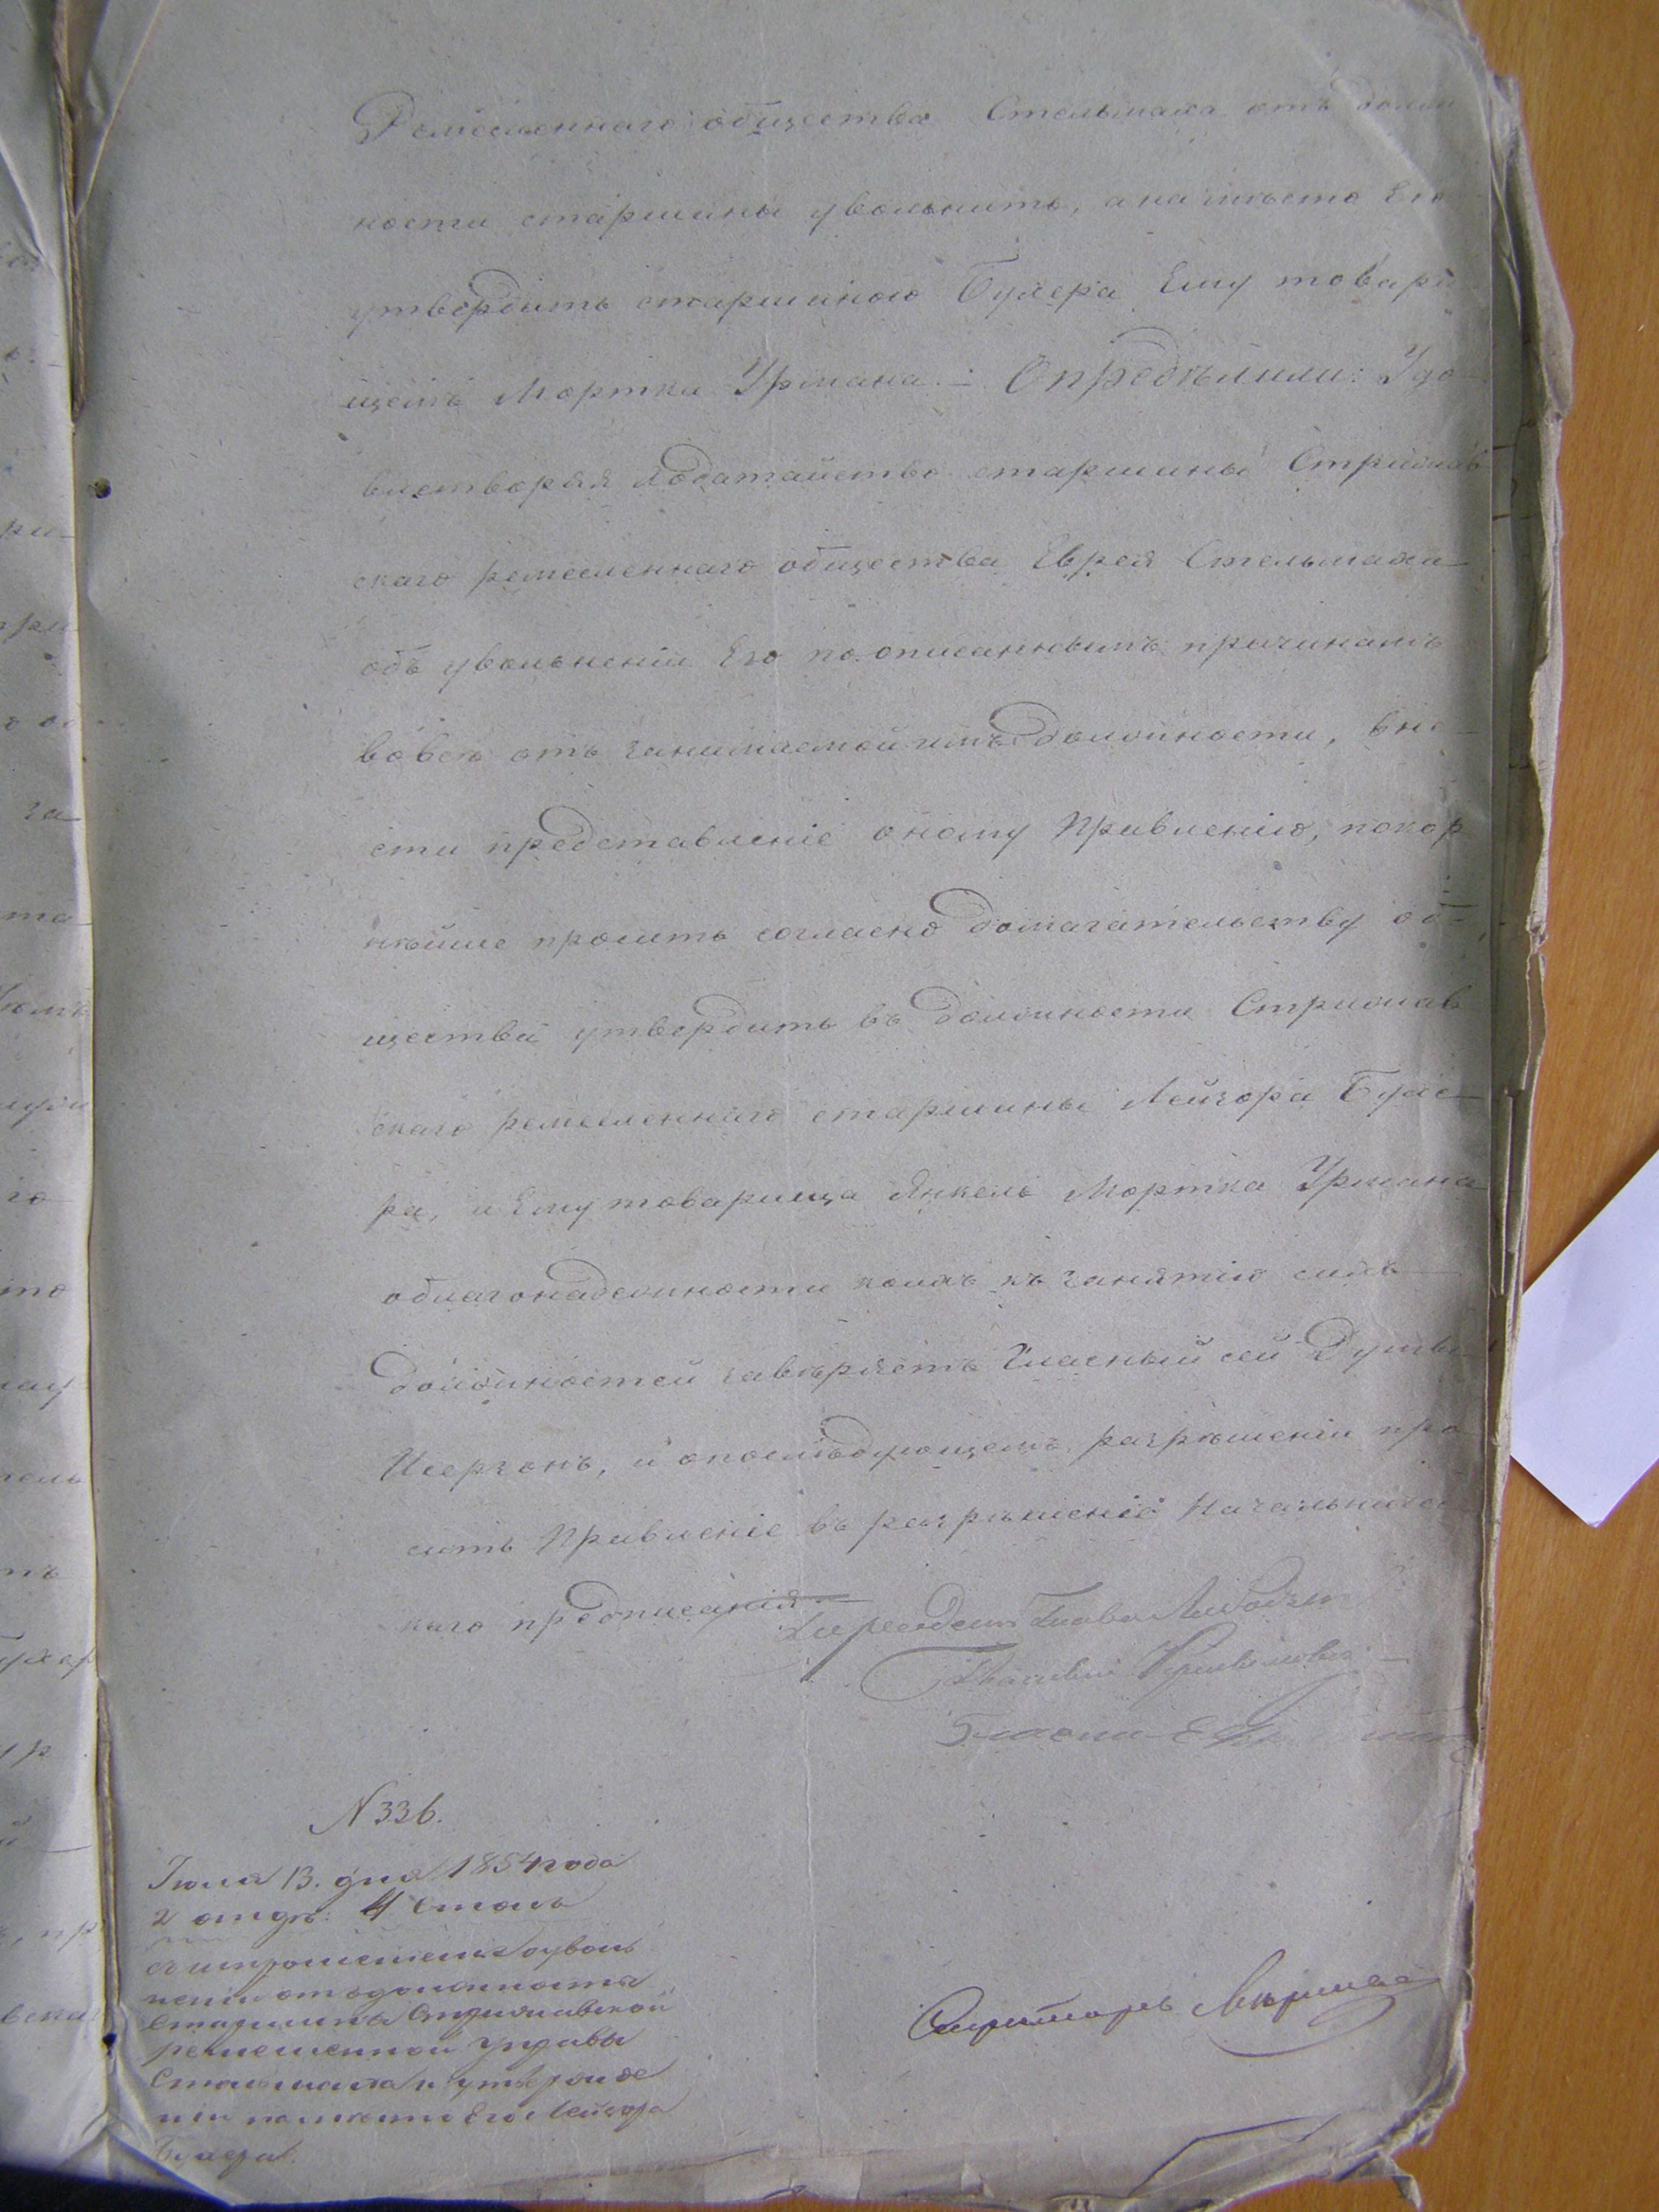 Ремесленнаго общества Стельмаха отъ долж
ности старшины увольнить, а на мѣсто Его
утвердить старшиною Бухера Ему товари
щемъ Мортка Урмана. Опредѣлили: Удо-
влетворяя ходатайство старшины Стрижав
скаго ремесленнаго общества Еврея Стельмаха
объ увольненіи Его по описаннымъ причинамъ
вовсе отъ занимаемой имъ должности, вне-
сти представленіе оному Правленію, покор
нѣйше просить согласно домагательству об-
щества утвердить въ должности Стрижав
скаго ремесленнаго старшины Лейзора Бухе-
ра, и Ему товарища Янкель Мортка Урмана
облагонадежности коихъ къ занятію сихъ
должностей завѣряетъ Гласный сей Думы
Исерзонъ, и опослѣдующемъ разрѣшеніи про
сить Правленіе въ разрѣшеніе Начальниче
каго предписанія.
Гласный
N 336.
Іюля 13. дня 1854 года
2 отдѣ: 4 Столъ
оуволь
неніи отъ должности
Старшины Стрижавской
ремесленной Управы
Стельмаха и утвержде
ніи на мѣсто Его Лейзора
Бухера.